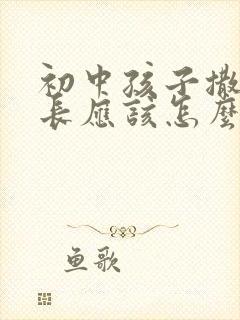 初中孩子撒
长应该怎么
鱼歌